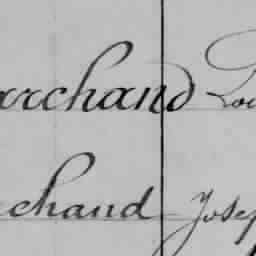 archand Lou
chand Josep